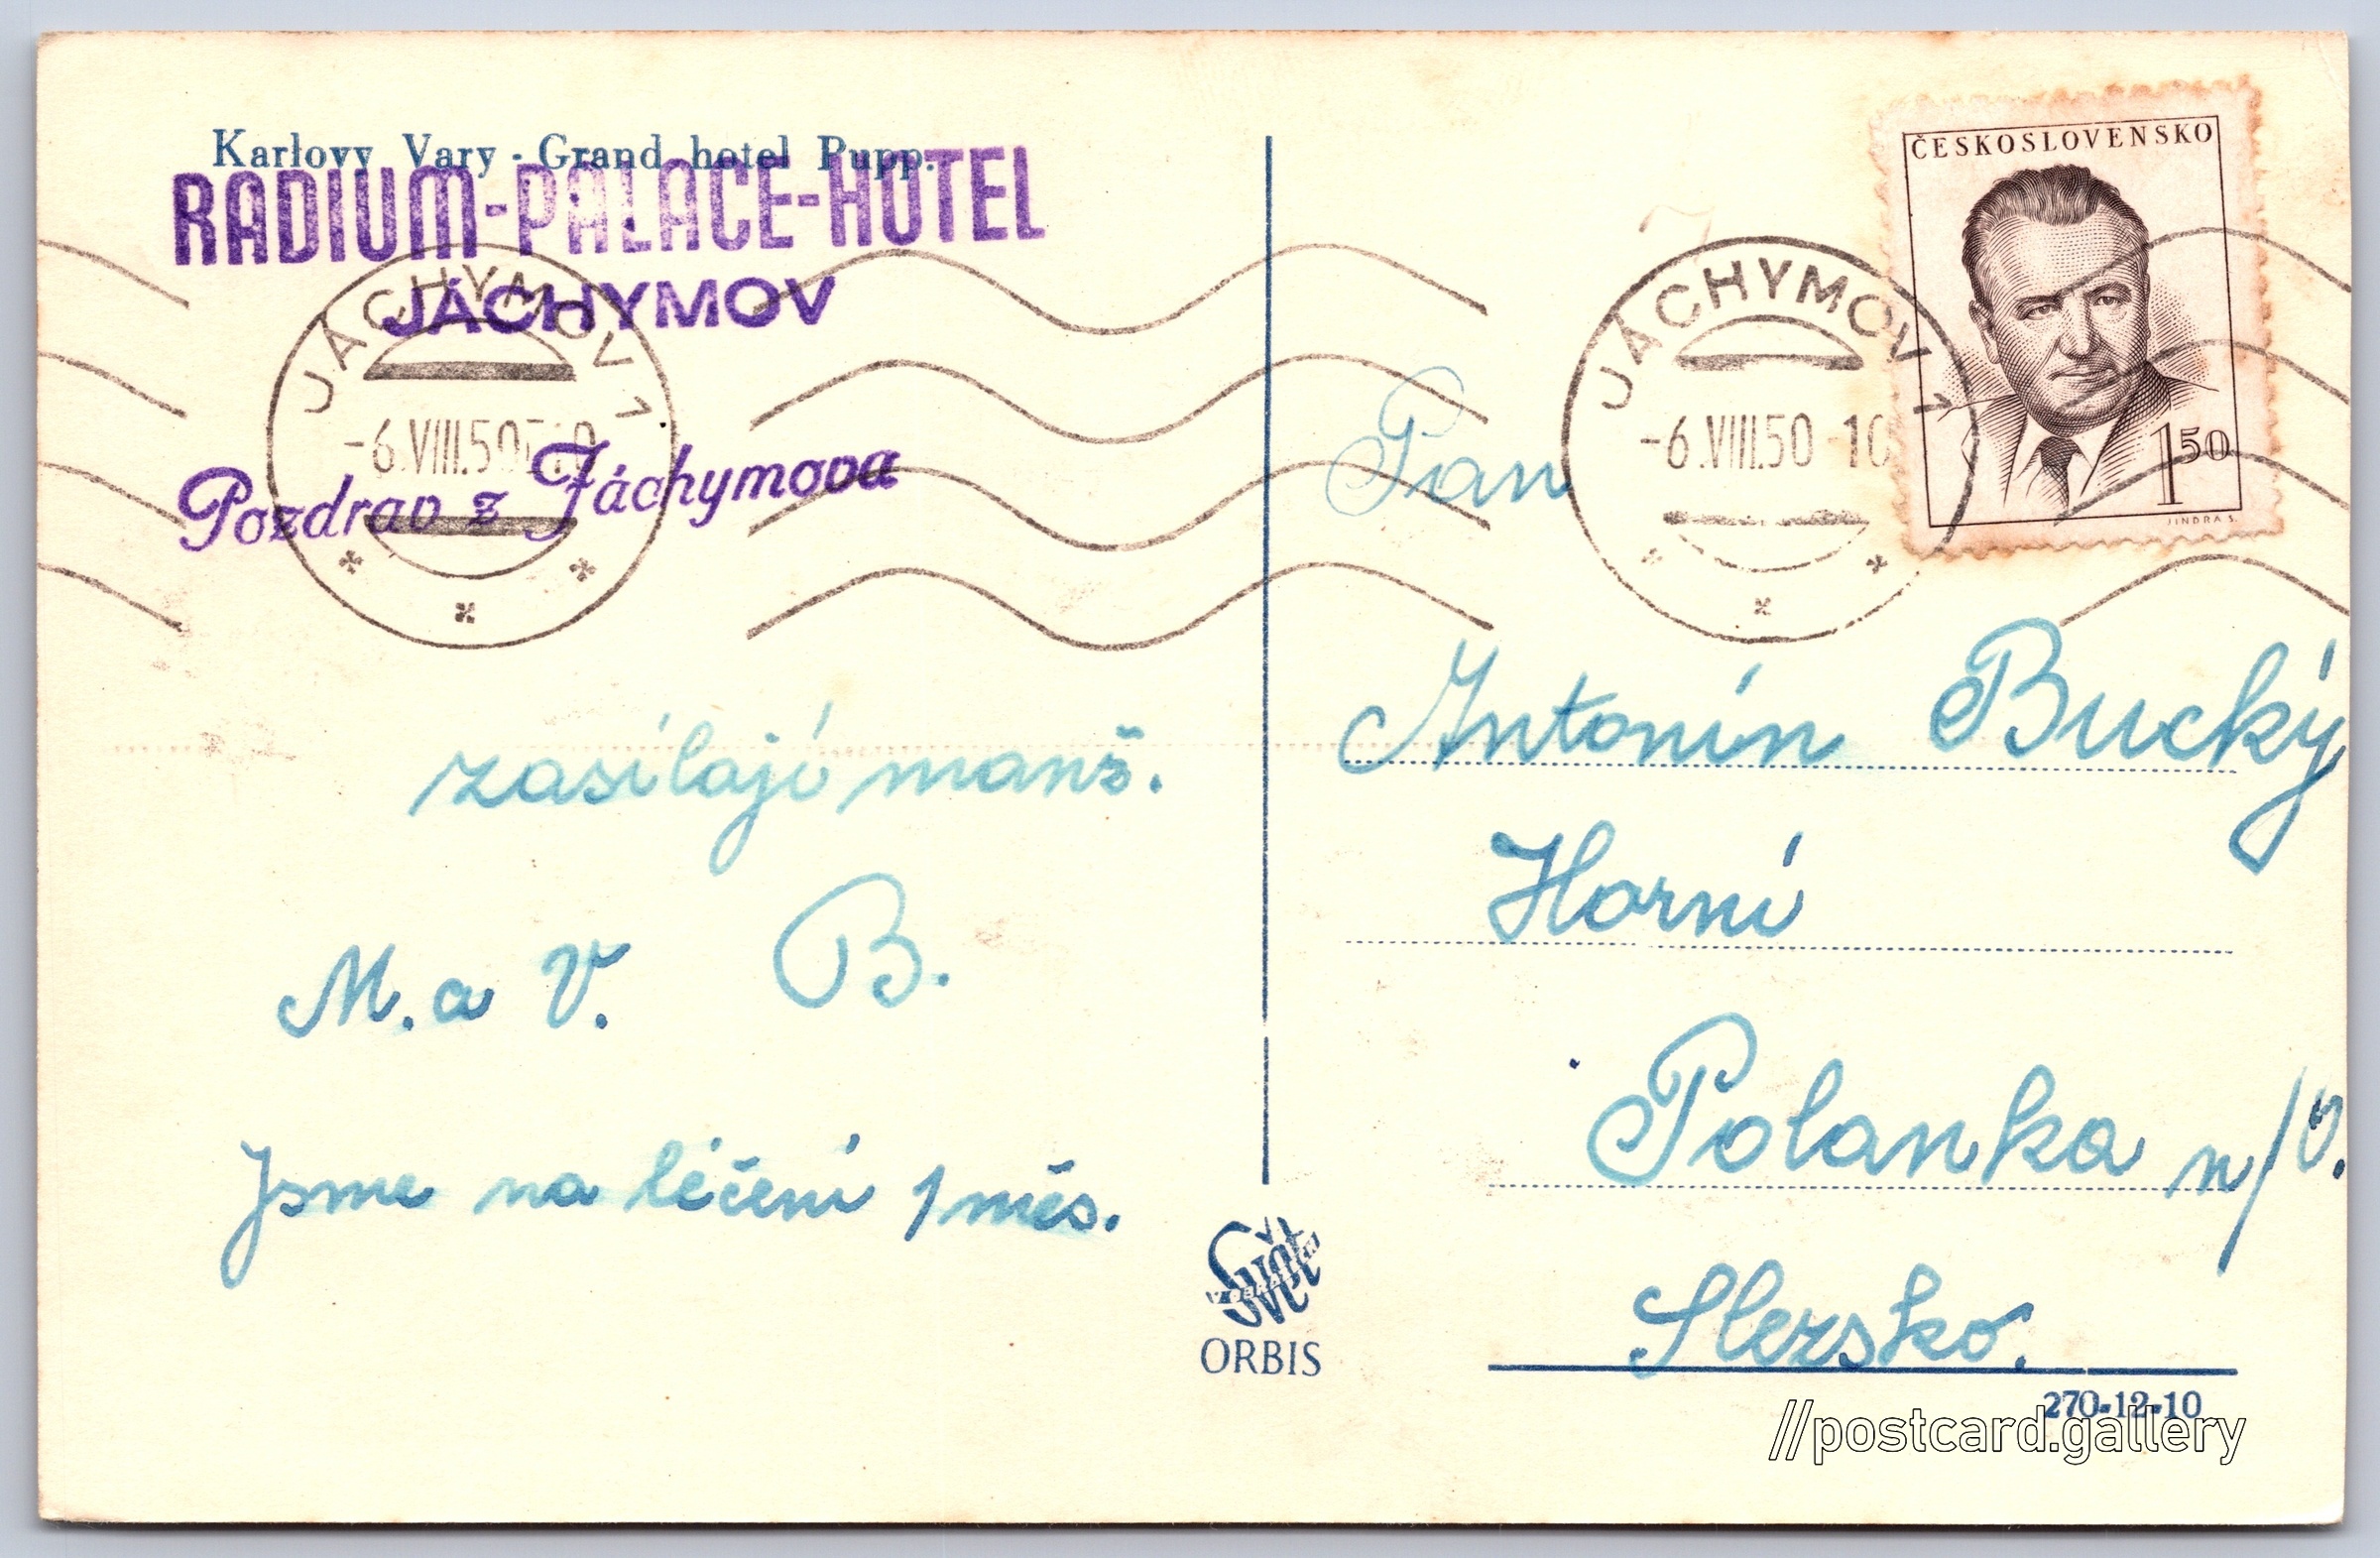 Karlovy Vary - Grand hotel Pupp.
RADIUM-PALACE-HOTEL
JÁCHYMOV
JÁCHYMOV 1
-6.VIII.50
Pozdrav z Jáchymova
zasílají manž.
M. a V. B.
Jsme na léčení 1 měs.
Svět
V OBRAZECH
ORBIS
ČESKOSLOVENSKO
1 50
JINDRA S.
JÁCHYMOV 1
-6.VIII.50 10
Pan
Antonín Bucký
Horní
Polanka n/O.
Slezsko.
270-12-10
//postcard.gallery